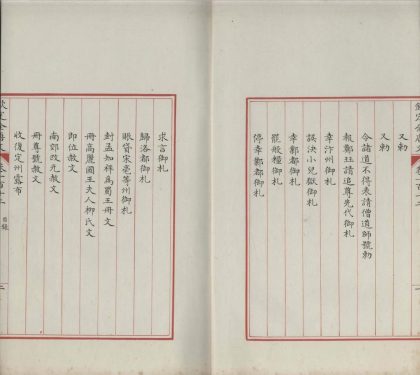 又勅
又勅
令諸道不得表請僧道師號勅
報鄭珏請追尊先代御札
幸汴州御札
誤決小兒獄御札
幸鄴都御札
罷般糧御札
停幸鄴都御札
求言御札
歸洛都御札
賑貸宋亳等州御札
封孟知祥爲蜀王冊文
冊高麗國王夫人柳氏文
即位赦文
南郊改元赦文
冊尊號赦文
收復定州露布
目錄